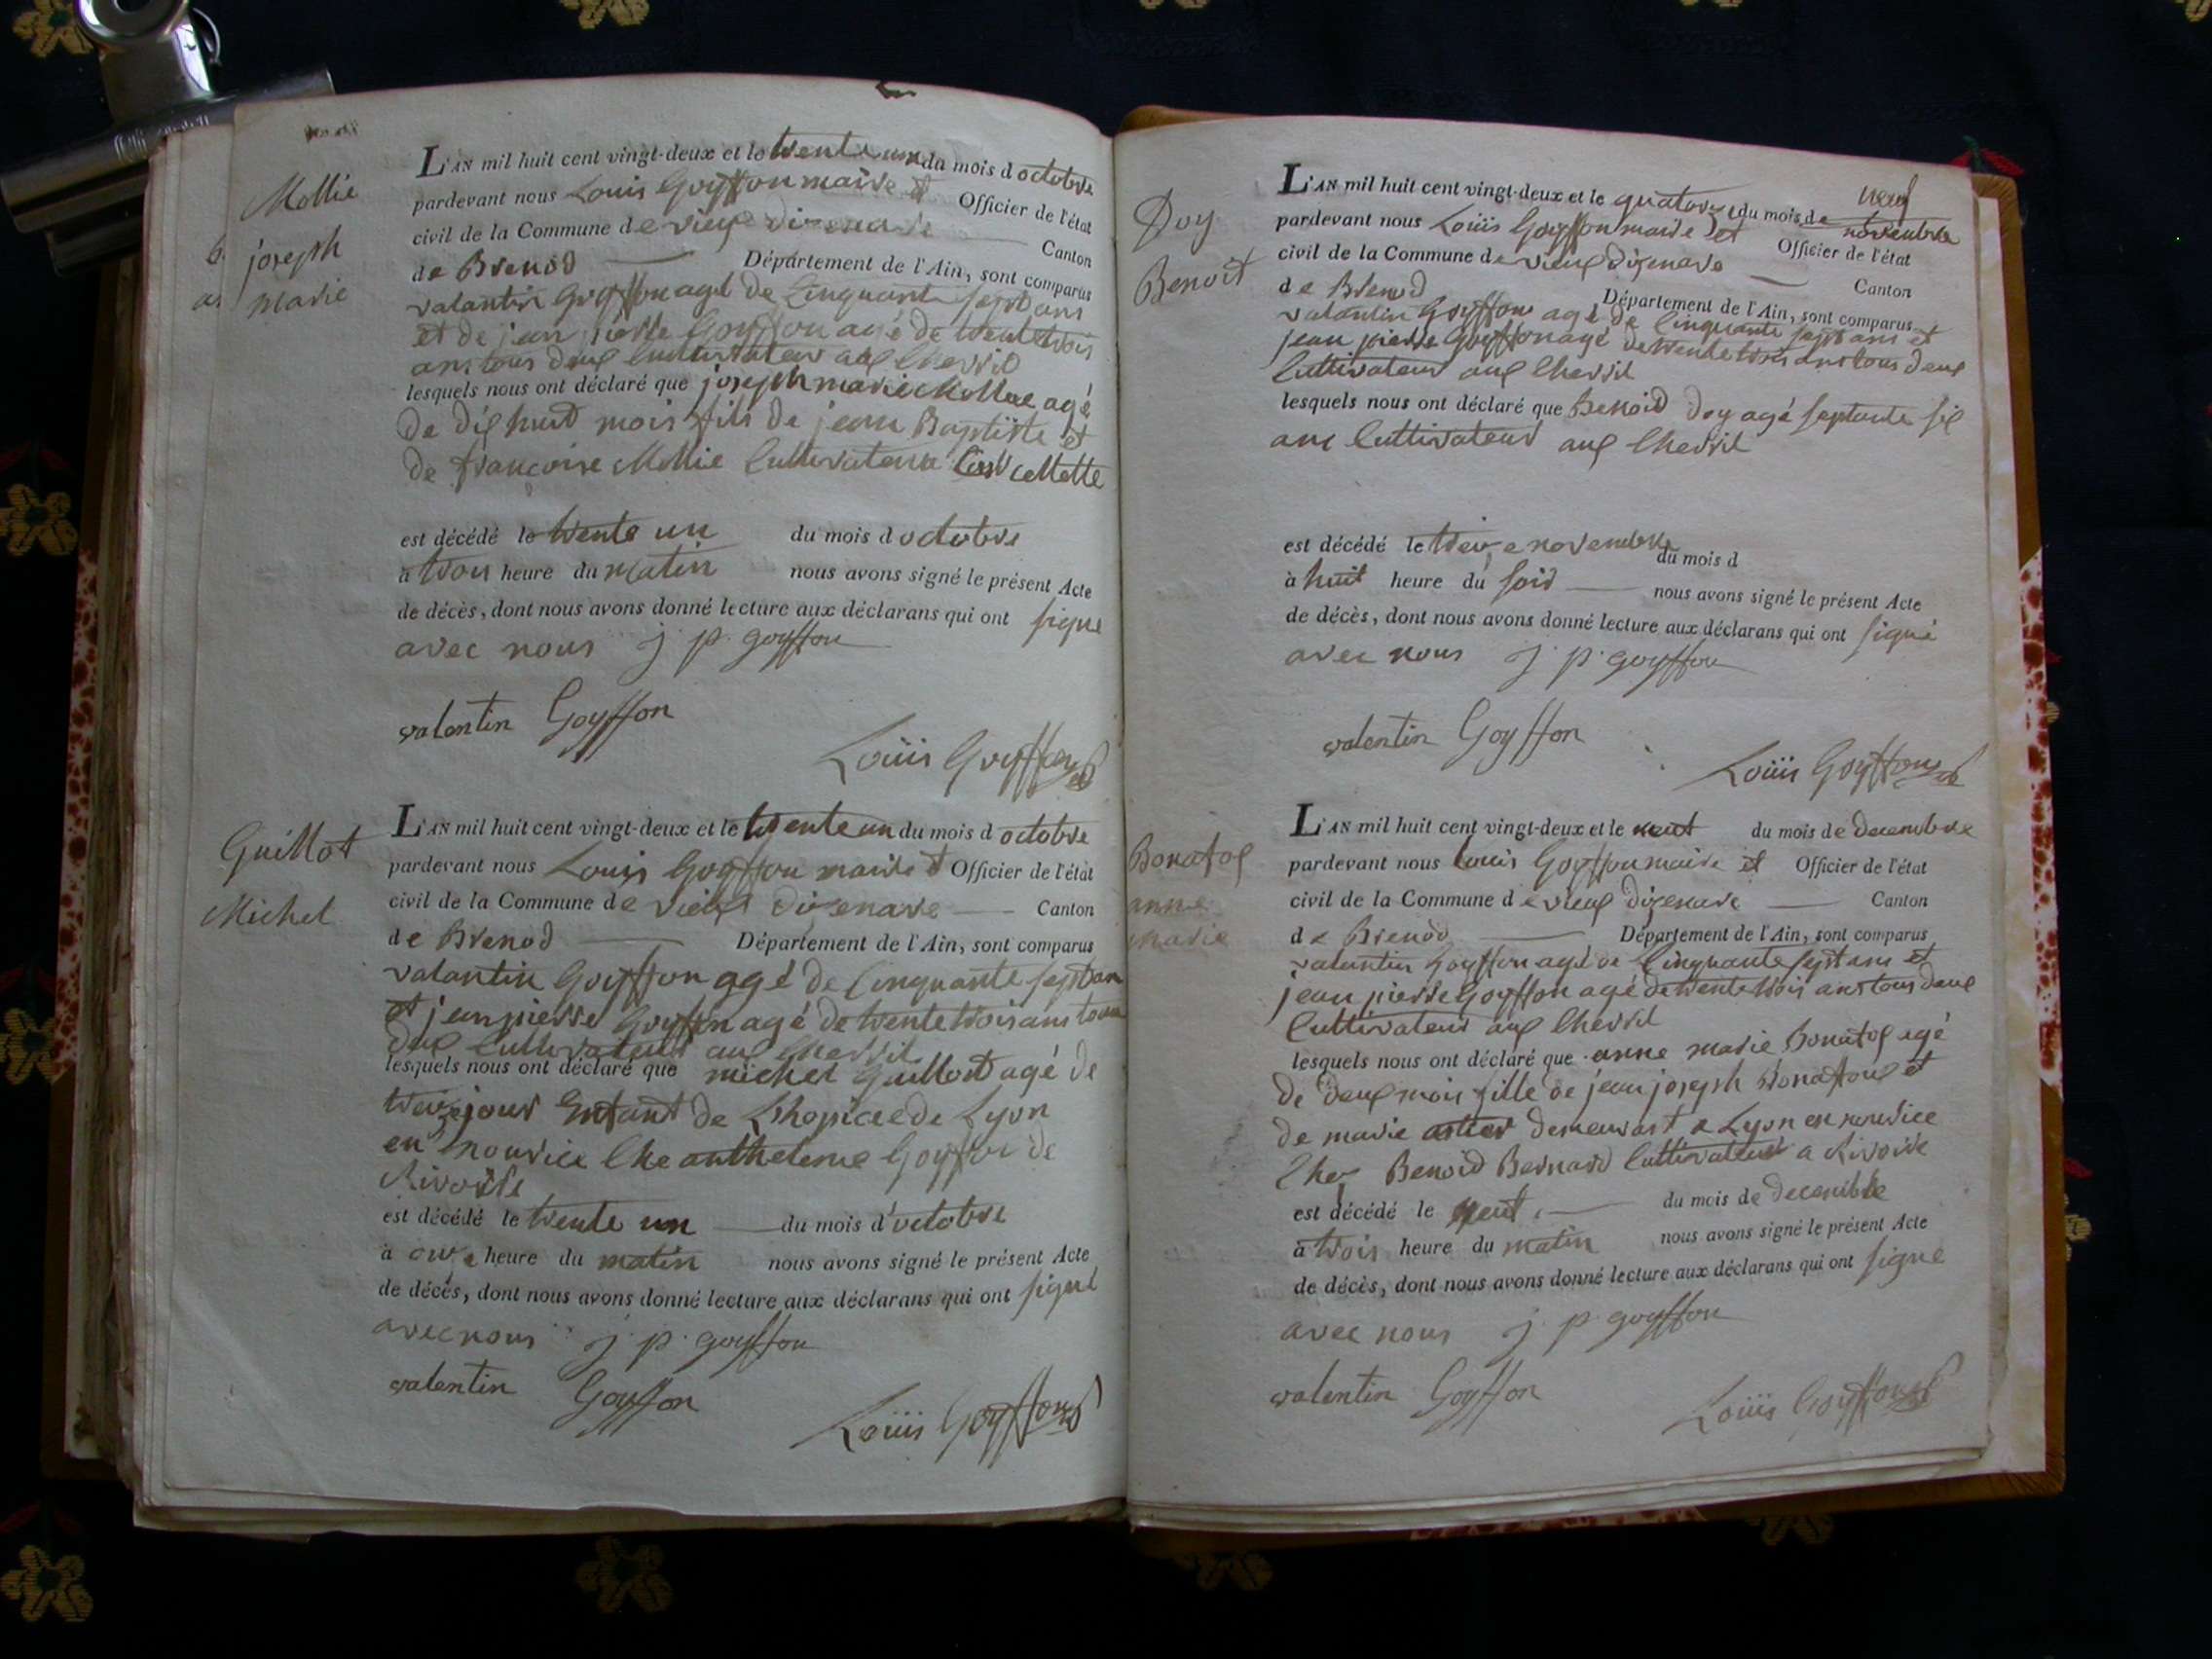 Mollie
joseph
marie
L'AN mil huit cent vingt-deux et le trente un du mois d octobre
pardevant nous Louis Goyffon maire et Officier de l'état
civil de la Commune de vieux disenave Canton
de Brenod Département de l'Ain, sont comparus
valantin Goyffon agé de cinquante sept ans
et de jean pierre Goyffon agé de trente trois
ans tous deux cultivateur aux chevril
lesquels nous ont déclaré que joseph marie Mollie agé
de dix huit mois fils de jean Baptiste et
de francoise Mollie cultivateur
est décédé le trente un du mois d octobre
à trois heure du matin nous avons signé le présent Acte
de décès, dont nous avons donné lecture aux déclarans qui ont signe
avec nous j p goyffon
valentin Goyffon
Louis Goyffon
Guillot
Michel
L'AN mil huit cent vingt-deux et le trente un du mois d octobre
pardevant nous Louis Goyffon maire et Officier de l'état
civil de la Commune de vieux disenave Canton
de Brenod Département de l'Ain, sont comparus
valantin Goyffon agé de cinquante sept an
et jean pierre Goyffon agé de trente trois ans tous
deux cultivateur aux chevril
lesquels nous ont déclaré que michel Guillot agé de
treize jour Enfant de Lhopice de Lyon
en nourice che antheleme Goyffon de
Rivoire
est décédé le trente un du mois d'octobre
à onze heure du matin nous avons signé le présent Acte
de décès, dont nous avons donné lecture aux déclarans qui ont signé
avec nous j p goyffon
valentin Goyffon
Louis Goyffon
Doy
Benoit
L'AN mil huit cent vingt-deux et le quatorze du mois de novembre
pardevant nous Louis Goyffon maire et Officier de l'état
civil de la Commune de vieux disenave Canton
de Brenod Département de l'Ain, sont comparus
valantin Goyffon agé de cinquante sept ans et
jean pierre Goyffon agé de trente trois ans tous deux
cultivateur aux chevril
lesquels nous ont déclaré que Benoid Doy agé septante six
ans cultivateur aux chevril
est décédé le treize novembre du mois d
à huit heure du soir nous avons signé le présent Acte
de décès, dont nous avons donné lecture aux déclarans qui ont signé
avec nous j p goyffon
valentin Goyffon
Louis Goyffon
Bonafox
anne
marie
L'AN mil huit cent vingt-deux et le neuf du mois de decembre
pardevant nous Louis Goyffon maire et Officier de l'état
civil de la Commune de vieux disenave Canton
de Brenod Département de l'Ain, sont comparus
valantin Goyffon agé de cinquante sept ans et
jean pierre Goyffon agé de trente trois ans tous deux
cultivateur aux chevril
lesquels nous ont déclaré que anne marie Bonafox agé
de deux mois fille de jean joseph Bonafoux et
de marie demeurant a Lyon en nourice
chez Benoid Bernard cultivateur a Rivoire
est décédé le neuf du mois de decembre
à trois heure du matin nous avons signé le présent Acte
de décès, dont nous avons donné lecture aux déclarans qui ont signe
avec nous j p goyffon
valentin Goyffon
Louis Goyffon